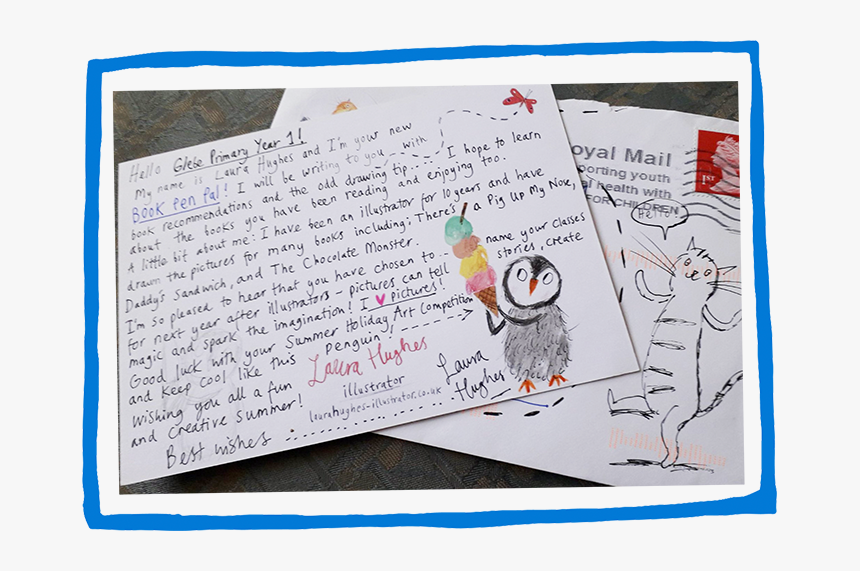 Hello Glebe Primary Year 1!
My name is Laura Hughes and I'm your new
BOOK PEN Pal! I will be writing to you with
book recommendations and the odd drawing tip.... I hope to learn
about the books you have been reading and enjoying too.
A little bit about me: I have been an illustrator for 10 years and have
drawn the pictures for many books including: There's a Pig Up My Nose,
Daddy's Sandwich, and The Chocolate Monster.
I'm so pleased to hear that you have chosen to name your classes
for next year after illustrators - pictures can tell stories, create
magic and spark the imagination! I ♥ pictures!
Good luck with your Summer Holiday Art Competition
and keep cool like this penguin,
Wishing you all a fun
and creative summer!
Best wishes
Laura Hughes
illustrator
laurahughes-illustrator.co.uk
Laura
Hughes
oyal Mail
porting youth
al health with
FOR CHILDREN
1st
Hello